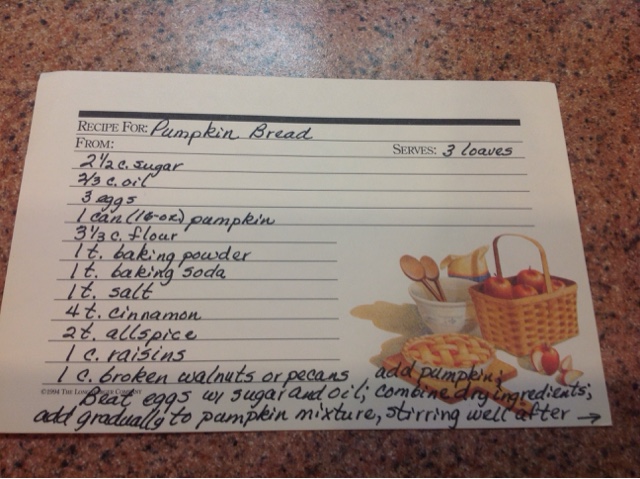 RECIPE FOR: Pumpkin Bread
FROM:
SERVES: 3 loaves
2 1/2 c. sugar
2/3 c. oil
3 eggs
1 can (16-oz) pumpkin
3 1/3 c. flour
1 t. baking powder
1 t. baking soda
1 t. salt
4 t. cinnamon
2 t. allspice
1 c. raisins
1 c. broken walnuts or pecans add pumpkin;
©1994 THE
Beat eggs w/ sugar and oil; combine dry ingredients;
add gradually to pumpkin mixture, stirring well after →